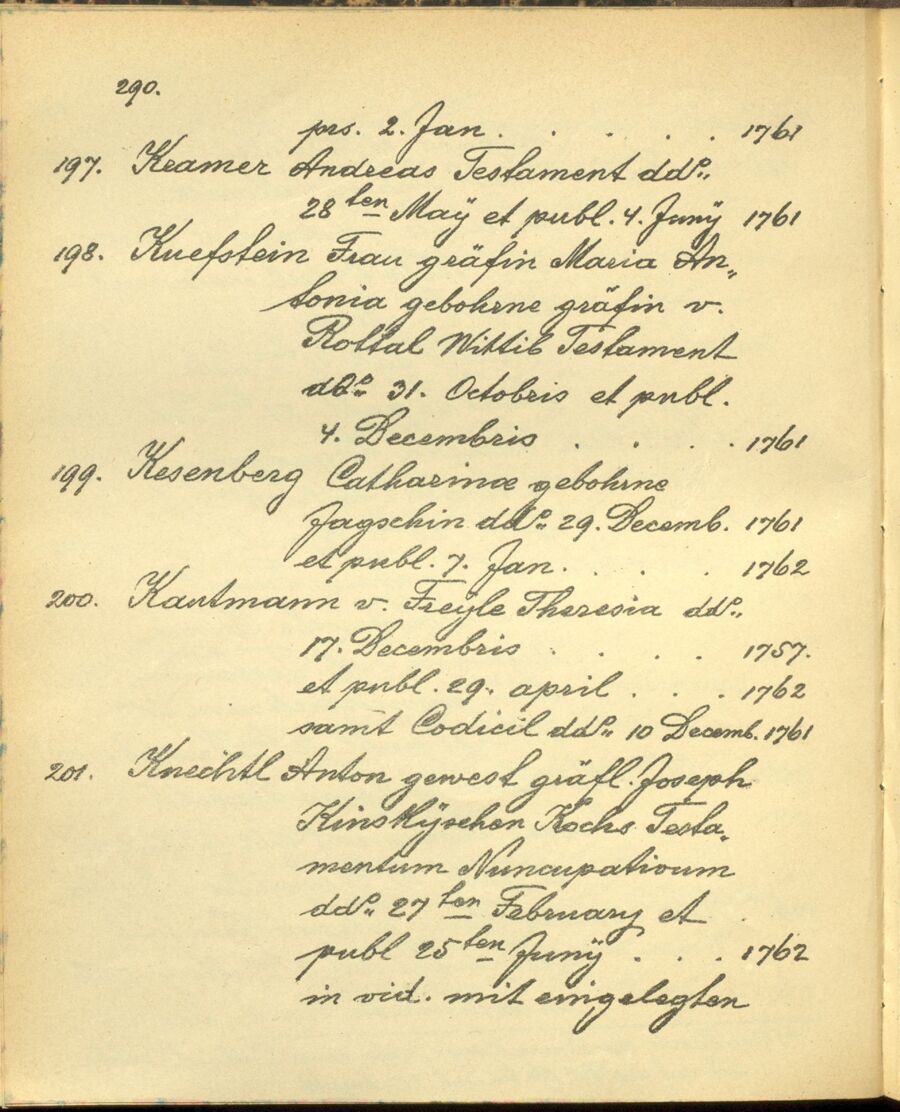 290.
prs. 2. Jan . . . . . 1761
197. Kramer Andreas Testament ddº„
28ten Maÿ et publ. 4. Junÿ 1761
198. Kuefstein Frau gräfin Maria An„
tonia gebohrne gräfin v.
Rottal Wittib Testament
ddº„ 31. Octobris et publ.
4. Decembris . . . . 1761
199. Kesenberg Catharinæ gebohrne
Jagschin ddº„ 29. Decemb. 1761
et publ. 7. Jan. . . . 1762
200. Kautmann v. Freyle Theresia ddº„
17. Decembris . . . . 1757.
et publ. 29. april . . . 1762
samt Codicil ddº„ 10 Decemb. 1761
201. Knechtl Anton gewest gräfl. Joseph
Kinskÿschen Kochs Testa„
mentum Nuncupativum
ddº„ 27ten February et
publ 25ten Junÿ . . . 1762
in vid. mit eingelegten